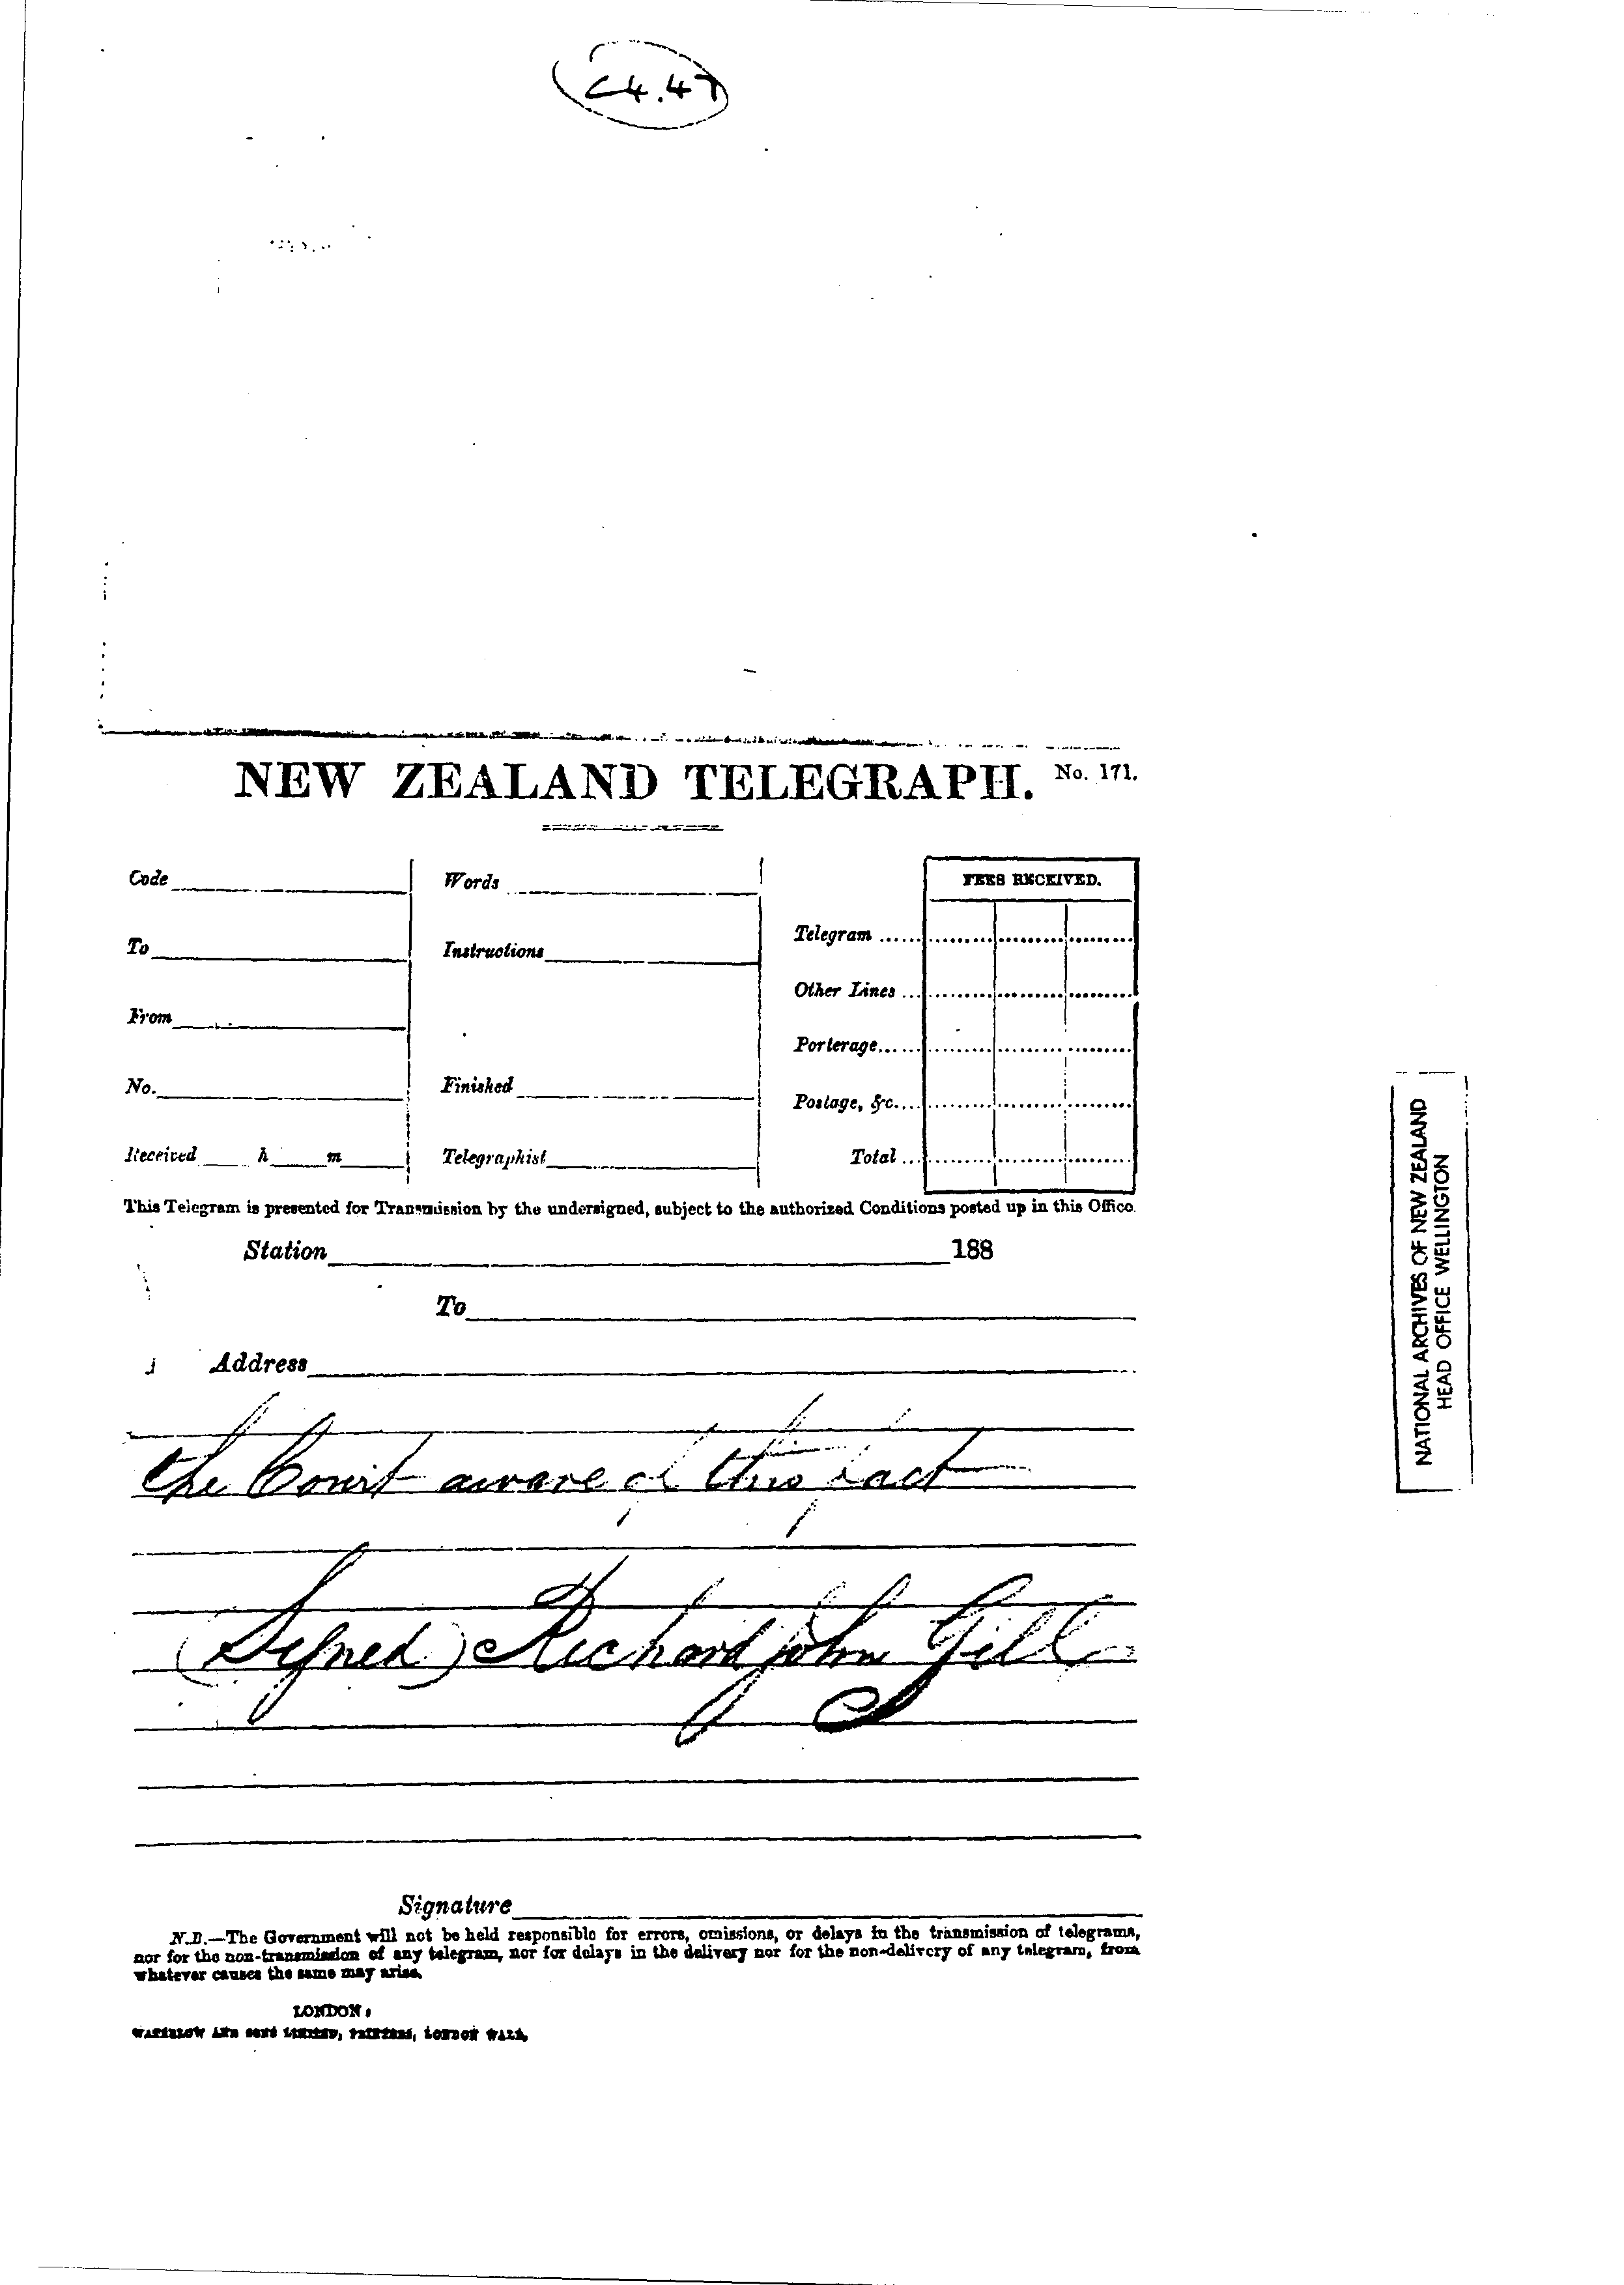 C4.47
NEW ZEALAND TELEGRAPH. No. 171.
Code
Words
FEES RECEIVED.
To
Instructions
Telegram ......
Other Lines ...
From
Porterage......
No.
Finished
Postage, &c....
Received h m
Telegraphist
Total ...
This Telegram is presented for Transmission by the undersigned, subject to the authorized Conditions posted up in this Office.
Station 188
To
Address
the Court aware of this fact
(Signed) Richard John Gill
Signature
N.B.—The Government will not be held responsible for errors, omissions, or delays in the transmission of telegrams,
nor for the non-transmission of any telegram, nor for delays in the delivery nor for the non-delivery of any telegram, from
whatever causes the same may arise.
LONDON:
WATERLOW AND SONS LIMITED, PRINTERS, LONDON WALL.
NATIONAL ARCHIVES OF NEW ZEALAND
HEAD OFFICE WELLINGTON